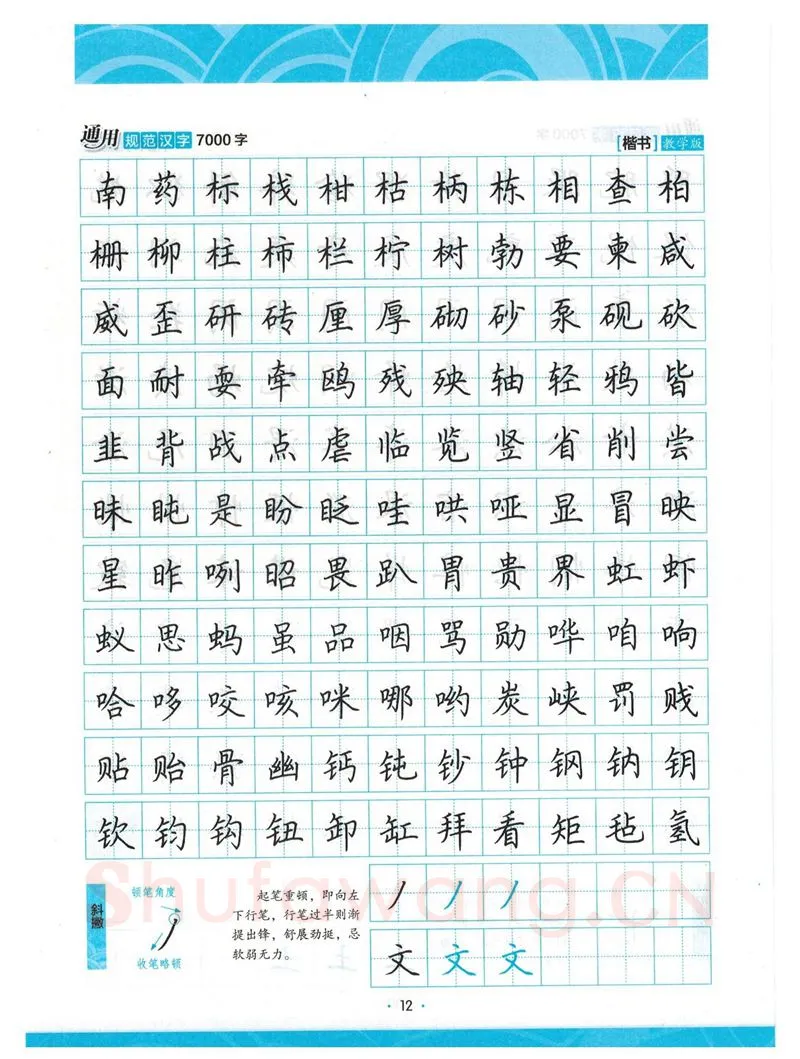 通用 规范汉字 7000 字 [楷书] 教学版
南药标栈柑枯柄栋相查柏
栅柳柱柿栏柠树勃要柬咸
威歪研砖厘厚砌砂泵砚砍
面耐耍牵鸥残殃轴轻鸦皆
韭背战点虐临览竖省削尝
昧盹是盼眨哇哄哑显冒映
星昨咧昭畏趴胃贵界虹虾
蚁思蚂虽品咽骂勋哗咱响
哈哆咬咳咪哪哟炭峡罚贱
贴贻骨幽钙钝钞钟钢钠钥
钦钧钩钮卸缸拜看矩毡氢
Shufawang.CN
斜撇
顿笔角度
收笔略顿
起笔重顿，即向左
下行笔，行笔过半则渐
提出锋，舒展劲挺，忌
软弱无力。
丿丿丿
文文文
· 12 ·